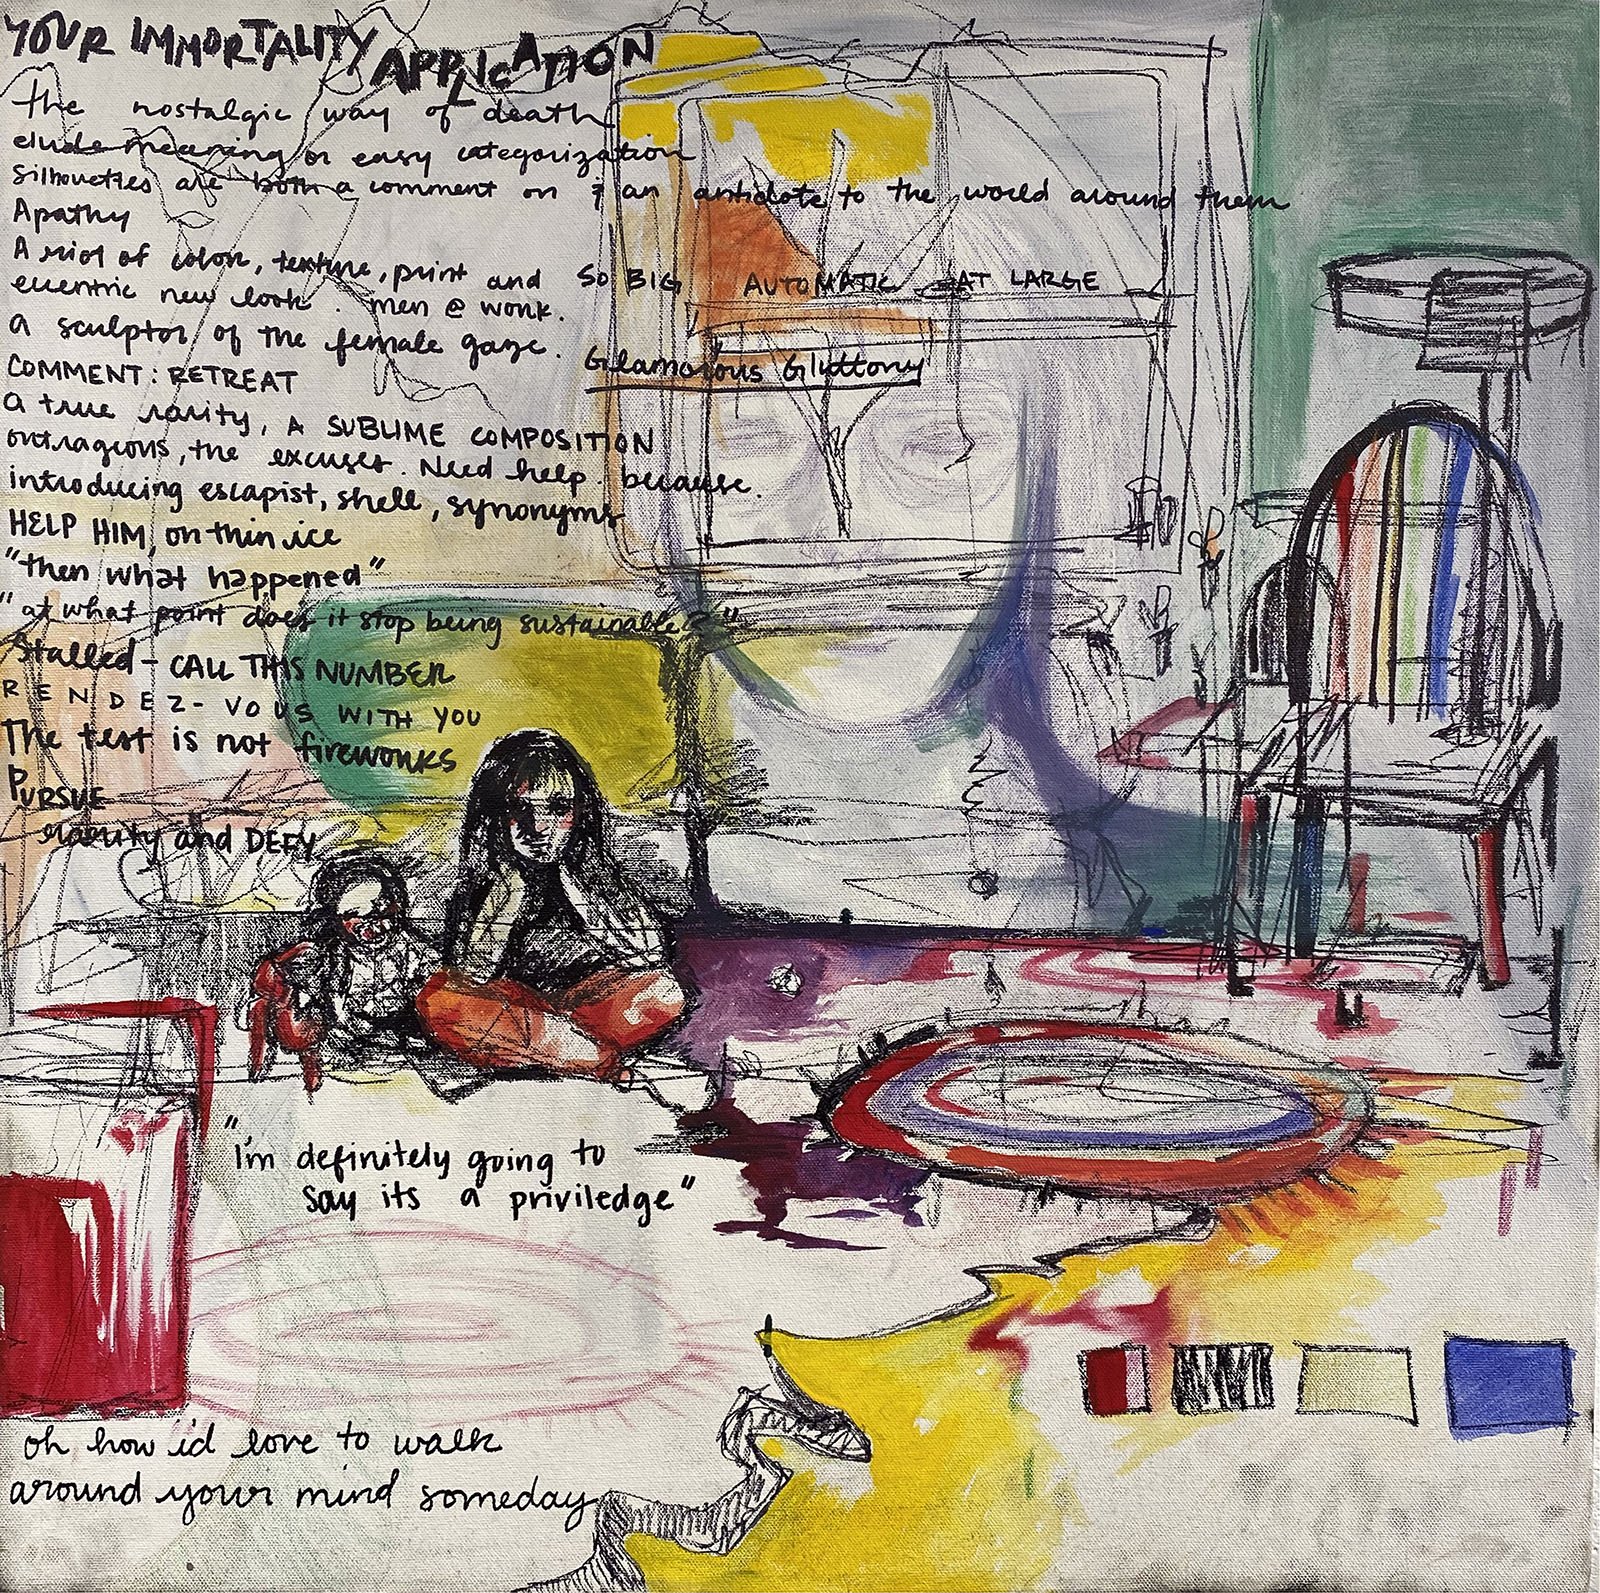 YOUR IMMORTALITY APPLICATION
the nostalgic way of death
elude meaning or easy categorization
silhouettes are both a comment on & an antidote to the world around them
Apathy
A riot of color, texture, print and SO BIG AUTOMATIC AT LARGE
eccentric new look. men @ work.
a sculptor of the female gaze. Glamorous Gluttony
COMMENT: RETREAT
a true rarity, A SUBLIME COMPOSITION
outrageous, the excuses. Need help. because.
introducing escapist, shell, synonyms
HELP HIM, on thin ice
"then what happened"
"at what point does it stop being sustainable?"
Stalled - CALL THIS NUMBER
RENDEZ-VOUS WITH YOU
The test is not fireworks
PURSUE
and DEFY
"I'm definitely going to
say its a priviledge"
oh how i'd love to walk
around your mind someday